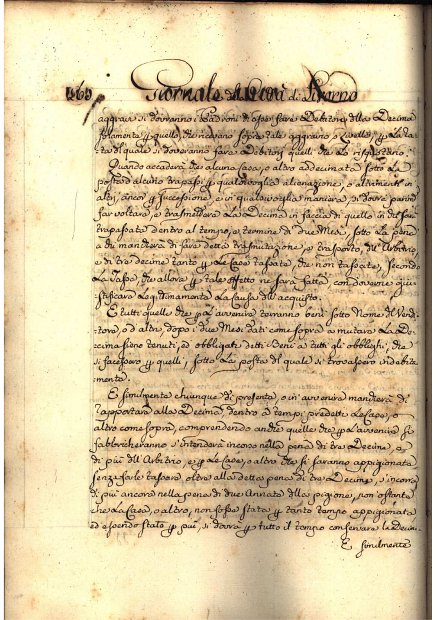 Giornale della Città di Livorno
aggrav. si dovranno i Padroni di esse fare Debitori della Decima
solamente p quello, che ricevano sopra tale aggravio, o livello, e p la ra-
ta di quale si doveranno fare Debitori quelli che lo risquotano.
Quando accaderà che alcuna Casa, o altro addecimata sotto la
posta d'alcuno trapassi p qualsivoglia alienazione, o altrimenti in
altri, ancor p successione, e in qualsivoglia maniera, si dovrà parim.
far voltare, e trasmettere la Decima in faccia di quello in chi sarà
trapassata dentro al tempo, e termine di due Mesi, sotto la pena
a chi mancherà di fare detta trasmutazione, e trasporto, dell'Arbitrio,
e di tre decime tanto p le Case tassate, che non tassate, secondo
la Tassa, che allora p tale effetto ne sarà fatta, con doverne giu-
stificare legittimamente la Causa dell'acquisto.
E tutti quelli che p l'avvenire terranno beni sotto Nome del Vendi-
tore, od altri, dopo i due Mesi dati come sopra a mutare la De-
cima sieno tenuti, ed obbligati detti Beni a tutti gli obblighi, che
si facessero p quelli, sotto la posta di quale si trovassero indebita-
mente.
E similmente chiunque di presente, o in avvenire mancherà di
rapportare alla Decima dentro a' tempi predetti le Case, o
altro come sopra, comprendendo anche quelle che p l'avvenire si
fabbricheranno s'intenderà incorso nella pena di tre Decime, e
di più dell'Arbitrio, e p le Case, o altro che si saranno appigionate
senza farle tassare, oltre alla detta pena di tre Decime, s'incorra
di più ancora nella pena di due Annate della pigione, non ostante
che la Casa, o altro, non fosse stata p tanto tempo appigionata
ed essendo stata p più, si dovrà p tutto il tempo conservare la Decim-
E similmente